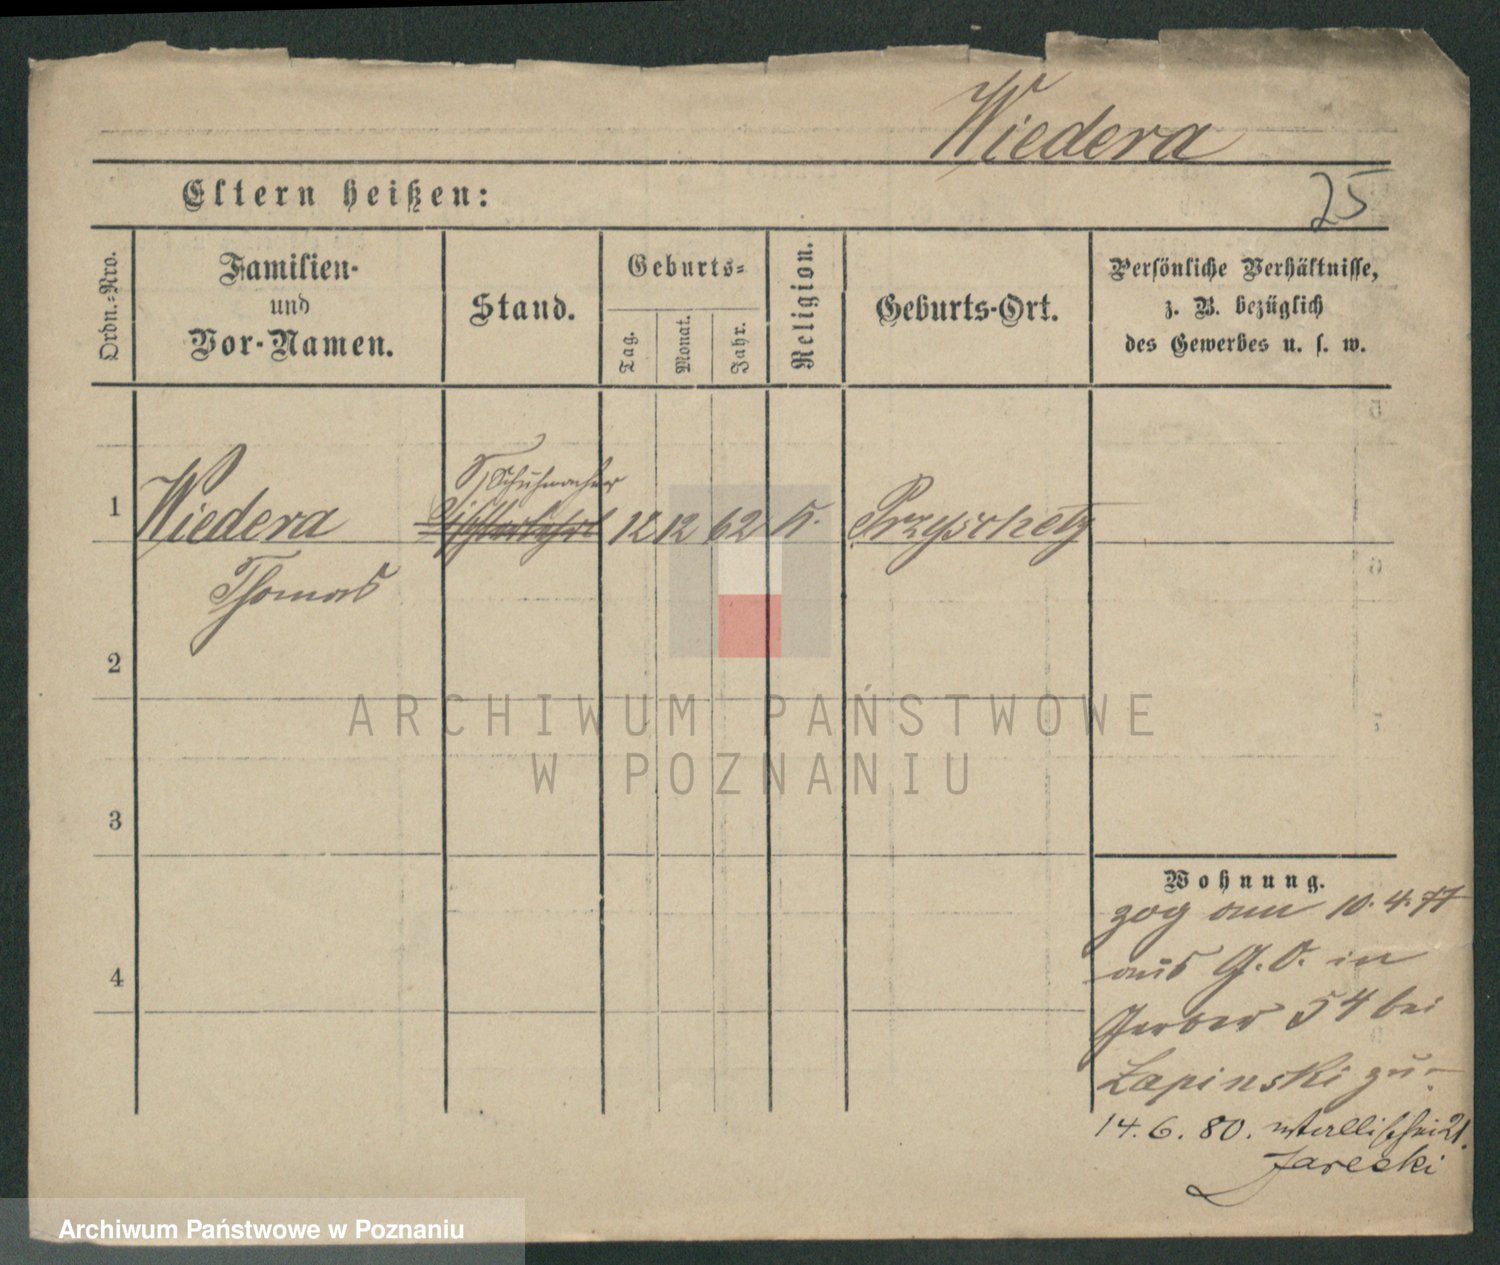 Wiedera
Eltern heißen:
25
Ordn.-Nro.
Familien-
und
Vor-Namen.
Stand.
Geburts-
Tag.
Monat.
Jahr.
Religion.
Geburts-Ort.
Persönliche Verhältnisse,
z. B. bezüglich
des Gewerbes u. s. w.
Schuhmacher
1 Wiedera 12 12 62 K.
Thomas
2
3
4
ARCHIWUM PAŃSTWOWE
W POZNANIU
Wohnung.
zog am 10.4.77
aus G.O. in
Gerber 54 bei
Lapinski zu
14.6.80. 21.
Jarecki
Archiwum Państwowe w Poznaniu